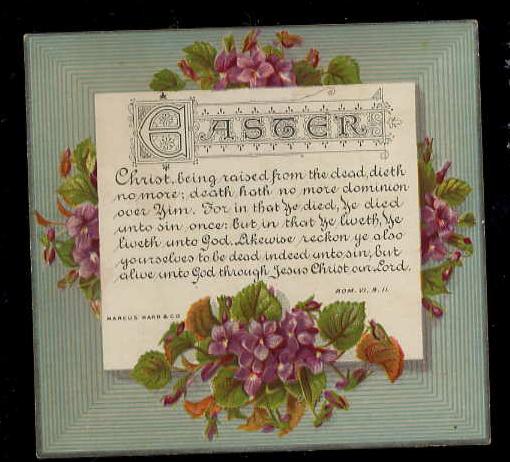 EASTER
Christ, being raised from the dead, dieth
no more; death hath no more dominion
over Him. For in that He died, He died
unto sin once: but in that He liveth, He
liveth unto God. Likewise reckon ye also
yourselves to be dead indeed unto sin, but
alive unto God through Jesus Christ our Lord.
ROM. VI. 9. 11.
MARCUS WARD & CO